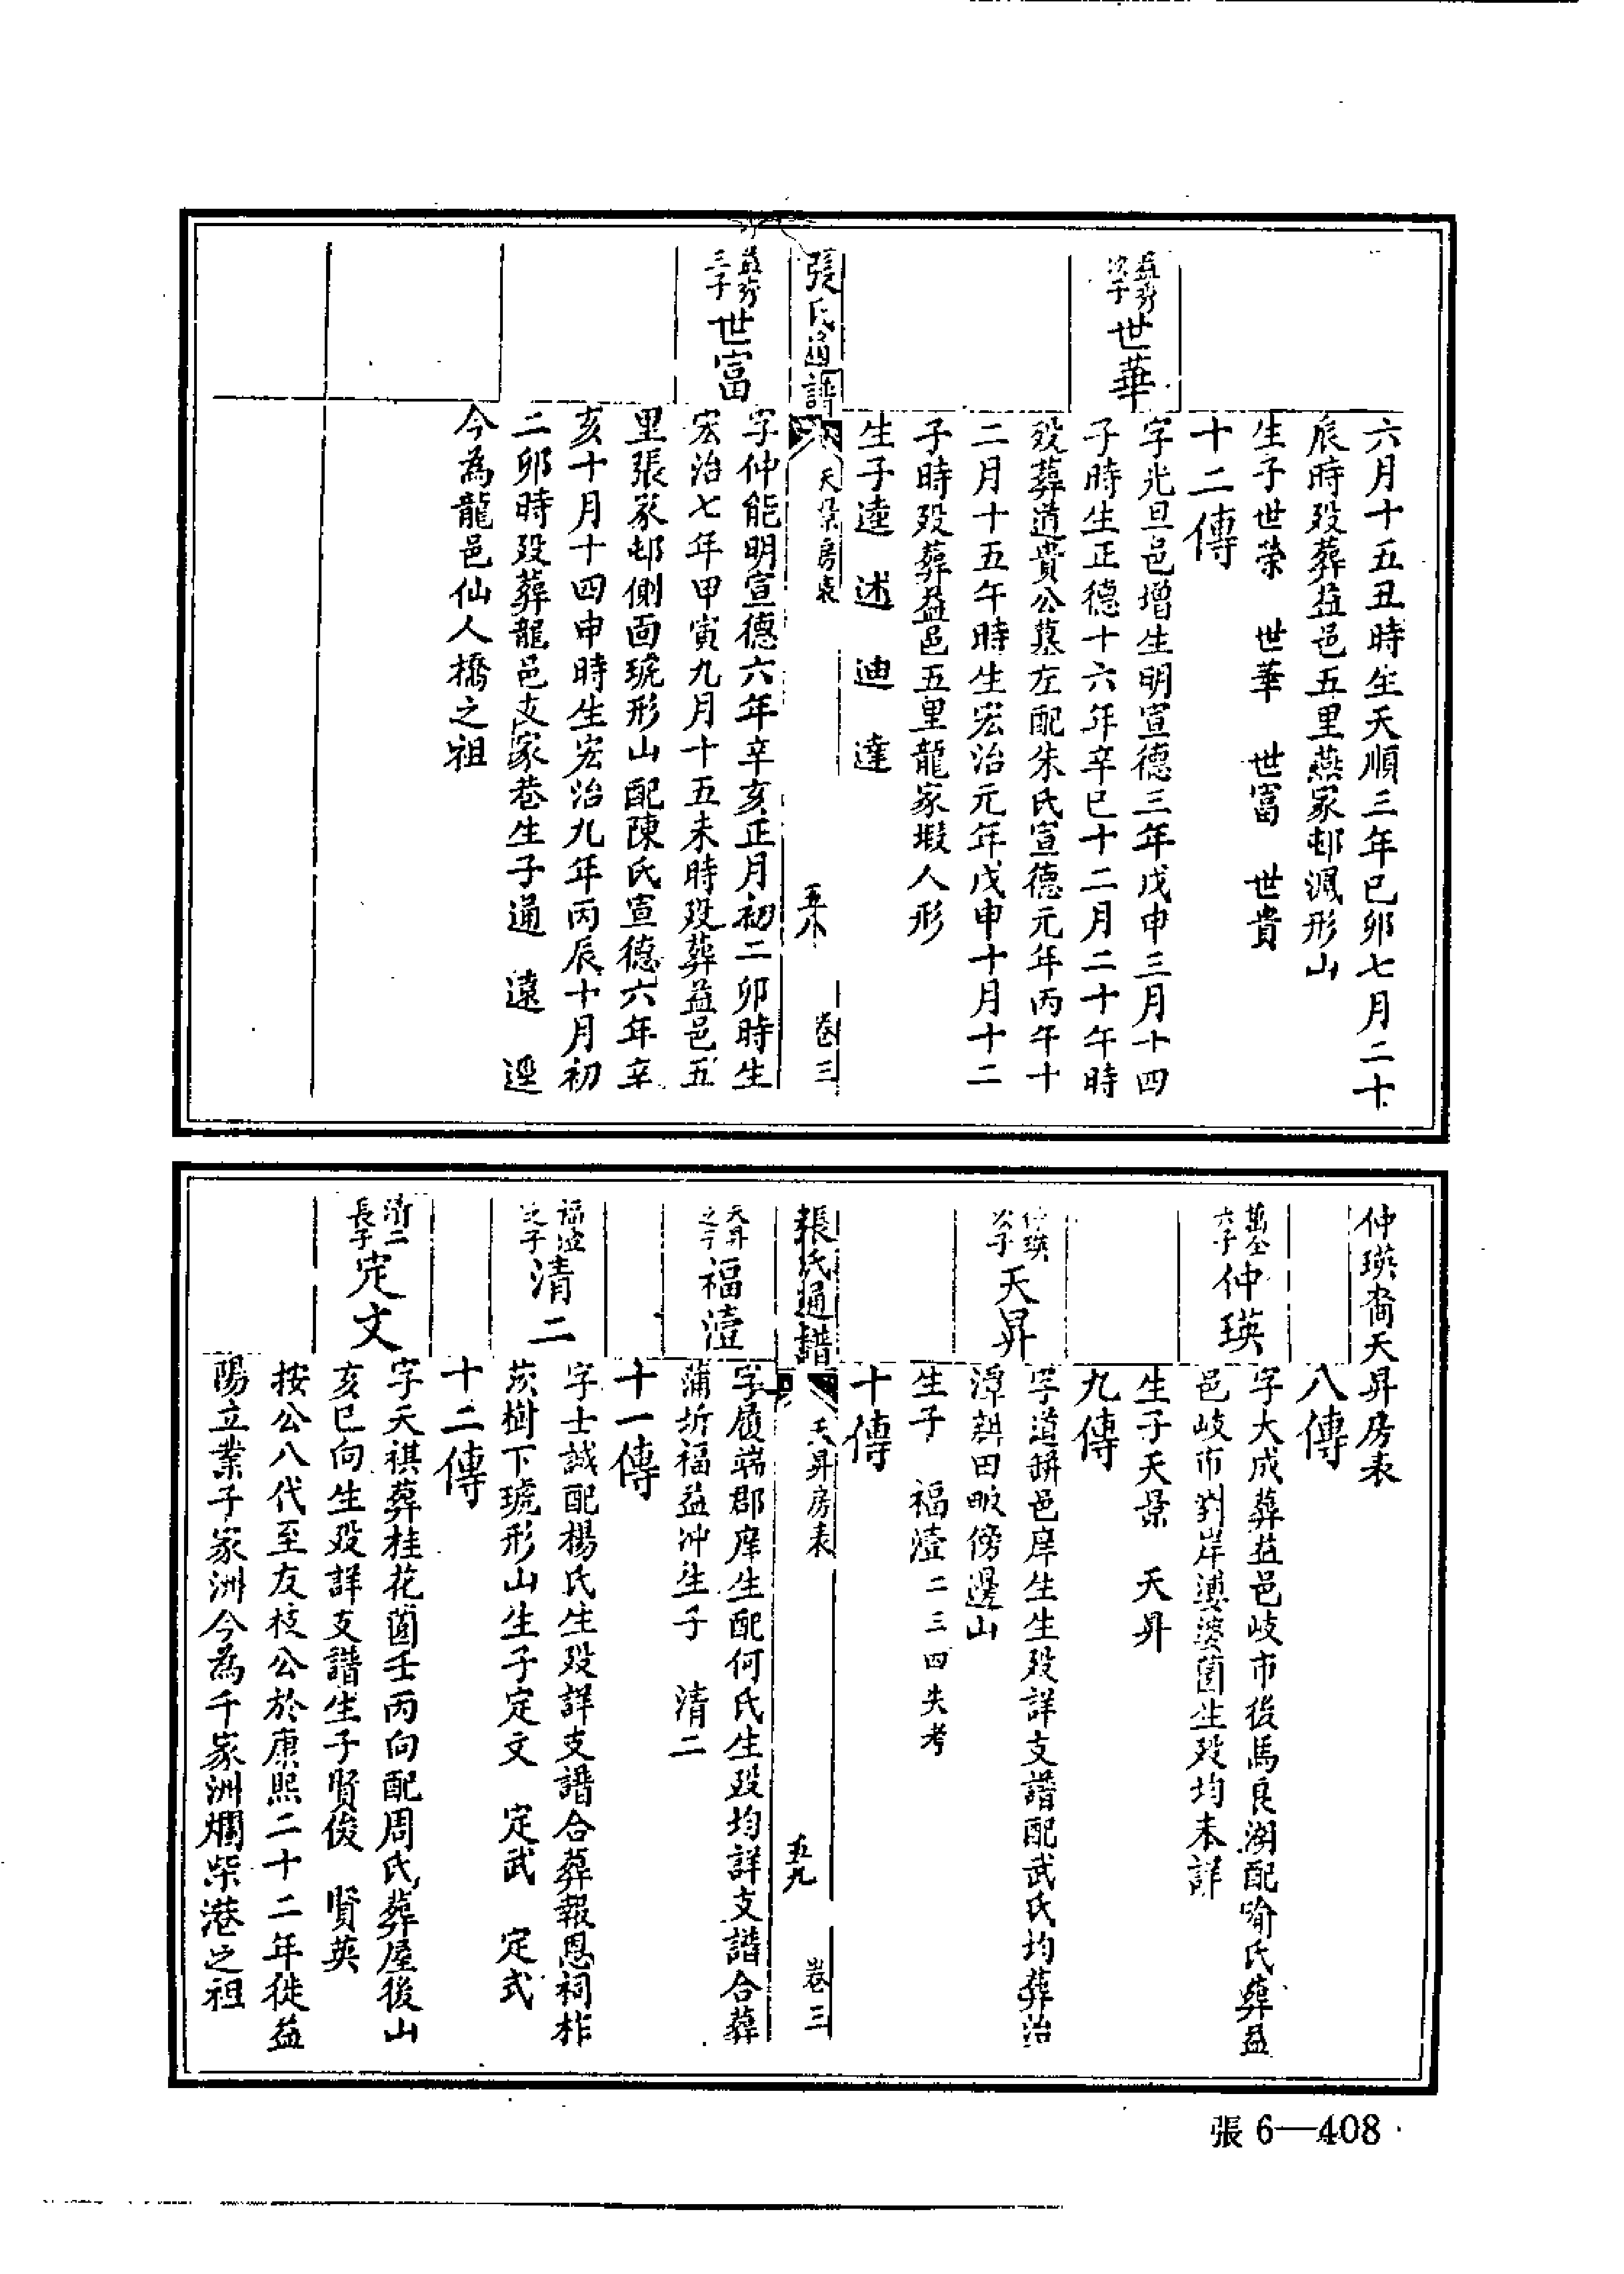 六月十五丑時生天順三年己卯七月二十
辰時歿葬益邑五里燕家邨渢形山
生子世榮 世華 世富 世貴
十二傳
次子
世華
字光旦邑增生明宣德三年戊申三月十四
子時生正德十六年辛巳十二月二十午時
歿葬道貴公墓左配朱氏宣德元年丙午十
二月十五午時生宏治元年戊申十月十二
子時歿葬益邑五里龍家塅人形
生子達 述 迪 達
張氏通譜
天景房表
五八
卷三
三子
世富
字仲能明宣德六年辛亥正月初二卯時生
宏治七年甲寅九月十五未時歿葬益邑五
里張家邨側面琥形山配陳氏宣德六年辛
亥十月十四申時生宏治九年丙辰十月初
二卯時歿葬龍邑支家巷生子通 遠 逕
今為龍邑仙人橋之祖
仲瑛裔天昇房表
八傳
六子
仲瑛
字大成葬益邑岐市後馬良湖配喻氏葬益
邑岐市對岸婆婆園生歿均未詳
生子天景 天昇
九傳
仲瑛
次子
天昇
字道耕邑庠生生歿詳支譜配武氏均葬沿
潭耕田畈傍邊山
生子 福澧二三四失考
十傳
張氏通譜
天昇房表
五九
卷三
天昇
之子
福澧
字履端郡庠生配何氏生歿均詳支譜合葬
蒲圻福益冲生子 清二
十一傳
福澧
之子
清二
字士誠配楊氏生歿詳支譜合葬報恩祠柞
茨樹下琥形山生子定文 定武 定式
十二傳
清二
長子
定文
字天祺葬桂花園壬丙向配周氏葬屋後山
亥巳向生歿詳支譜生子賢俊 賢英
按公八代至友枝公於康熙二十二年徙益
陽立業子家洲今為千家洲爛柴港之祖
張6—408